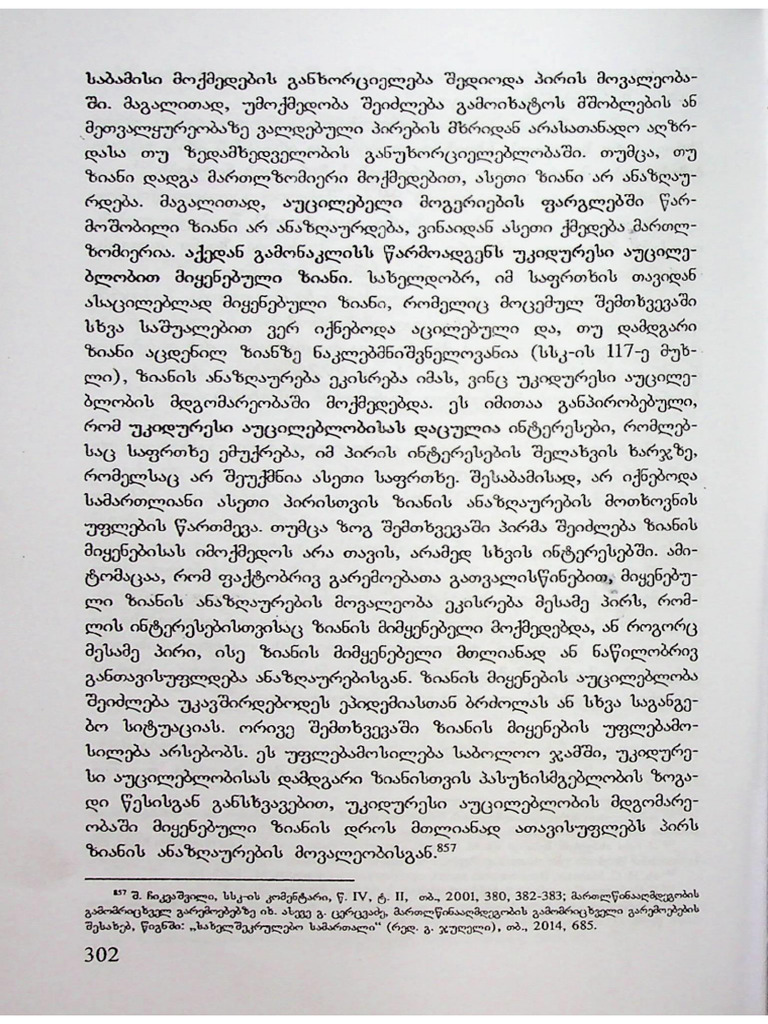 საბამისი მოქმედების განხორციელება შედიოდა პირის მოვალეობა-
ში. მაგალითად, უმოქმედობა შეიძლება გამოიხატოს მშობლების ან
მეთვალყურეობაზე ვალდებული პირების მხრიდან არასათანადო აღზრ-
დასა თუ ზედამხედველობის განუხორციელებლობაში. თუმცა, თუ
ზიანი დადგა მართლზომიერი მოქმედებით, ასეთი ზიანი არ ანაზღაუ-
რდება. მაგალითად, აუცილებელი მოგერიების ფარგლებში წარ-
მოშობილი ზიანი არ ანაზღაურდება, ვინაიდან ასეთი ქმედება მართლ-
ზომიერია. აქედან გამონაკლისს წარმოადგენს უკიდურესი აუცილე-
ბლობით მიყენებული ზიანი. სახელდობრ, იმ საფრთხის თავიდან
ასაცილებლად მიყენებული ზიანი, რომელიც მოცემულ შემთხვევაში
სხვა საშუალებით ვერ იქნებოდა აცილებული და, თუ დამდგარი
ზიანი აცდენილ ზიანზე ნაკლებმნიშვნელოვანია (სსკ-ის 117-ე მუხ-
ლი), ზიანის ანაზღაურება ეკისრება იმას, ვინც უკიდურესი აუცილე-
ბლობის მდგომარეობაში მოქმედებდა. ეს იმითაა განპირობებული,
რომ უკიდურესი აუცილებლობისას დაცულია ინტერესები, რომლებ-
საც საფრთხე ემუქრება, იმ პირის ინტერესების შელახვის ხარჯზე,
რომელსაც არ შეუქმნია ასეთი საფრთხე. შესაბამისად, არ იქნებოდა
სამართლიანი ასეთი პირისთვის ზიანის ანაზღაურების მოთხოვნის
უფლების წართმევა. თუმცა ზოგ შემთხვევაში პირმა შეიძლება ზიანის
მიყენებისას იმოქმედოს არა თავის, არამედ სხვის ინტერესებში. ამი-
ტომაცაა, რომ ფაქტობრივ გარემოებათა გათვალისწინებით, მიყენებუ-
ლი ზიანის ანაზღაურების მოვალეობა ეკისრება მესამე პირს, რომ-
ლის ინტერესებისთვისაც ზიანის მიმყენებელი მოქმედებდა, ან როგორც
მესამე პირი, ისე ზიანის მიმყენებელი მთლიანად ან ნაწილობრივ
განთავისუფლდება ანაზღაურებისგან. ზიანის მიყენების აუცილებლობა
შეიძლება უკავშირდებოდეს ეპიდემიასთან ბრძოლას ან სხვა საგანგე-
ბო სიტუაციას. ორივე შემთხვევაში ზიანის მიყენების უფლებამო-
სილება არსებობს. ეს უფლებამოსილება საბოლოო ჯამში, უკიდურე-
სი აუცილებლობისას დამდგარი ზიანისთვის პასუხისმგებლობის ზოგა-
დი წესისგან განსხვავებით, უკიდურესი აუცილებლობის მდგომარე-
ობაში მიყენებული ზიანის დროს მთლიანად ათავისუფლებს პირს
ზიანის ანაზღაურების მოვალეობისგან.⁸⁵⁷
⁸⁵⁷ შ. ჩიკვაშვილი, სსკ-ის კომენტარი, წ. IV, ტ. II, თბ., 2001, 380, 382-383; მართლწინააღმდეგობის
გამომრიცხველ გარემოებებზე იხ. ასევე გ. ცერცვაძე, მართლწინააღმდეგობის გამომრიცხველი გარემოებების
შესახებ, წიგნში: „სახელშეკრულებო სამართალი“ (რედ. გ. ჯუღელი), თბ., 2014, 685.
302